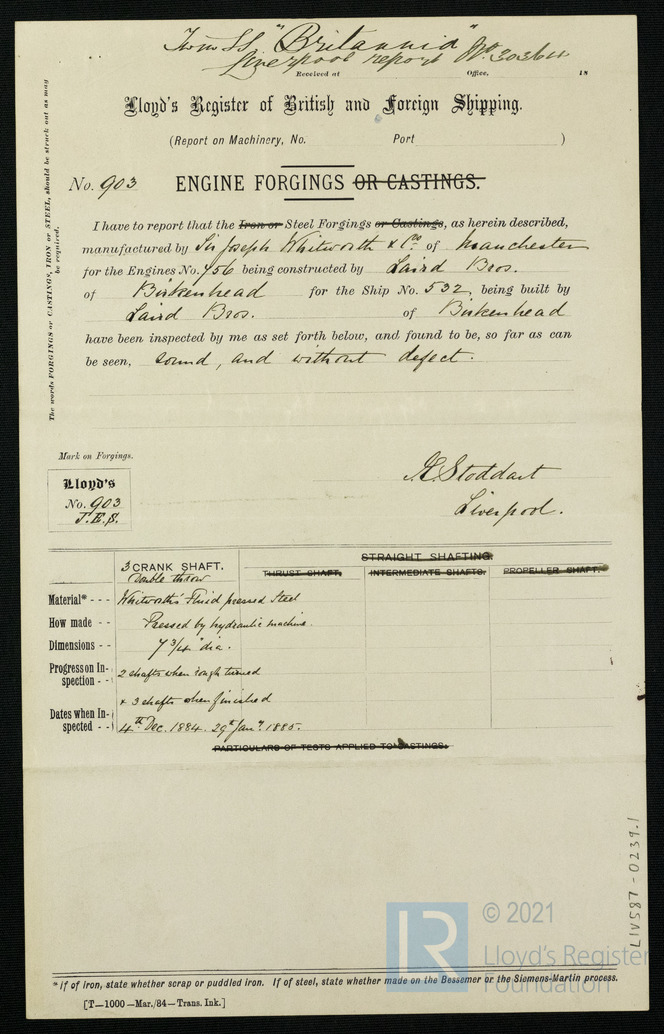 Twn SS "Britannia"
Liverpool report No. 30364
Received at Office, 18
Lloyd's Register of British and Foreign Shipping.
(Report on Machinery, No. Port )
No. 903 ENGINE FORGINGS OR CASTINGS.
I have to report that the Iron or Steel Forgings or Castings, as herein described,
manufactured by Sir Joseph Whitworth & Co. of Manchester
for the Engines No. 456 being constructed by Laird Bros.
of Birkenhead for the Ship No. 532 being built by
Laird Bros. of Birkenhead
have been inspected by me as set forth below, and found to be, so far as can
be seen, sound, and without defect.
The words FORGINGS or CASTINGS, IRON or STEEL, should be struck out as may
be required.
Mark on Forgings.
Lloyd's
No. 903
J.E.S.
J.E. Stoddart
Liverpool.
STRAIGHT SHAFTING.
3 CRANK SHAFT. THRUST SHAFT. INTERMEDIATE SHAFTS. PROPELLER SHAFT.
Double throw
Material* - - - Whitworth's Fluid pressed Steel
How made - - Pressed by hydraulic machine.
Dimensions - - 7 3/4" dia.
Progress on In-
spection - - 2 shafts when rough turned
& 3 shafts when finished
Dates when In-
spected - - 4th Dec. 1884. 29th Jany. 1885.
PARTICULARS OF TESTS APPLIED TO CASTINGS:
LIV587-0239.1
© 2021
LR
Lloyd's Register
Foundation
*If of iron, state whether scrap or puddled iron. If of steel, state whether made on the Bessemer or the Siemens-Martin process.
[T—1000—Mar./84—Trans. Ink.]